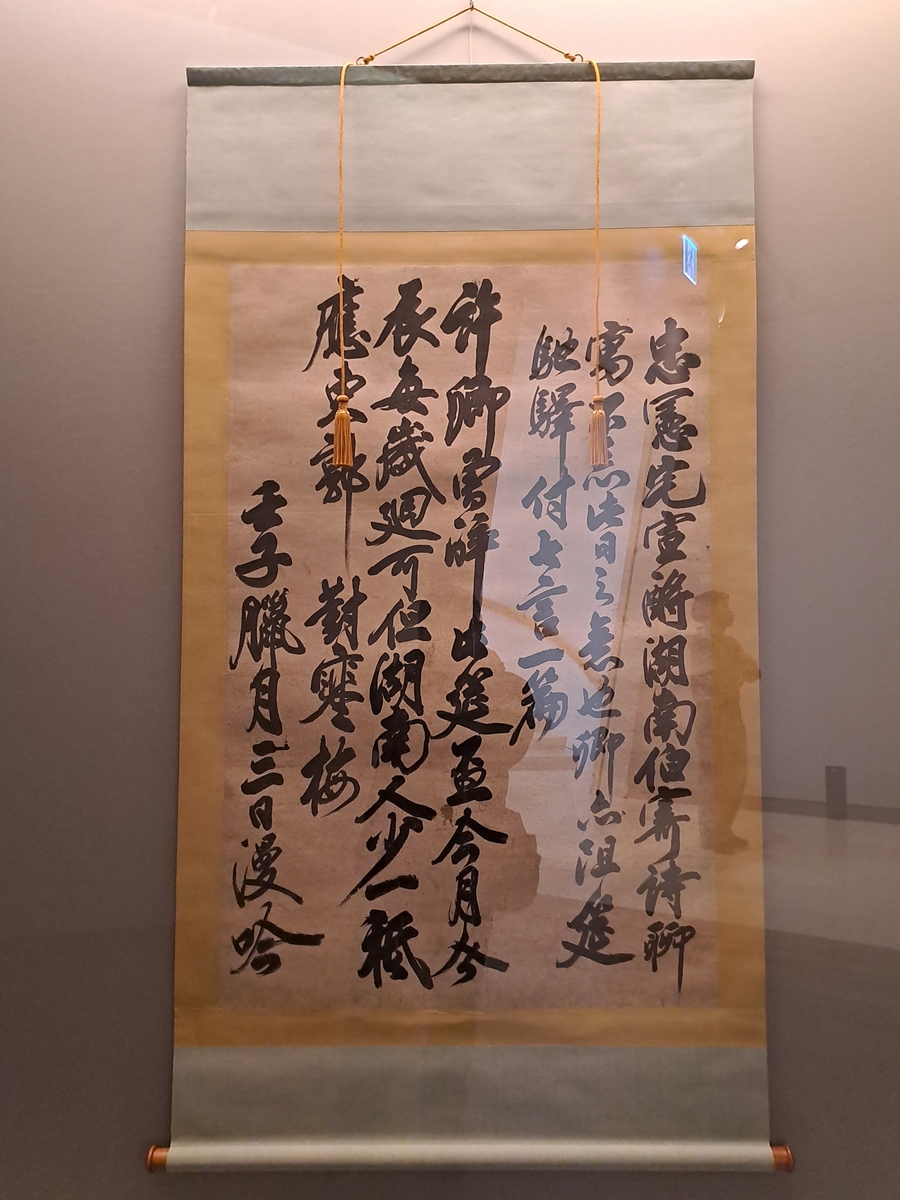 忠憲先宣湖南伯寄詩聊
寓不忘此日之意也卿亦沮筵
馳驛付七言一篇
許卿曾此筵今月今
辰每歲廻可但湖南人少一秪
應東 對寒梅
壬子臘月三日漫吟